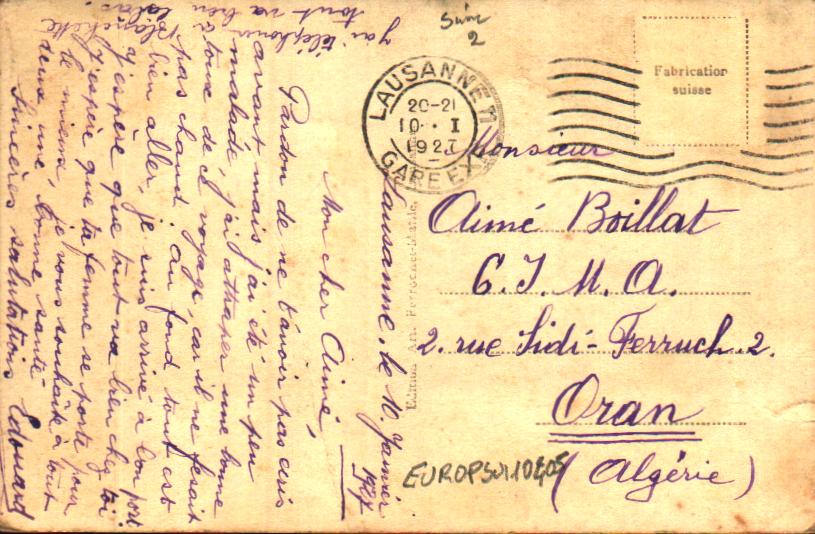 Lausanne, le 10 Janvier
1927
Mon cher Aimé,
Pardon de ne t'avoir pas écris
avant mais j'ai été un peu
malade, j'ai attraper une bonne
toux de ce voyage, car il ne ferait
pas chaud. Au fond tout est
bien aller, je suis arrivé à bon port
J'espère que tout va bien chez toi
J'espère que ta femme se porte pour
le mieux, je vous souhaite à tout
deux une bonne santé
Sincères salutations Edouard
j'ai téléphoner à
Blanchette
tout va bien
Fabrication
suisse
LAUSANNE
20-21
10. I
1927
GARE EXP.
Monsieur
Aimé Boillat
C.I.M.A.
2. rue Sidi-Ferruch. 2.
Oran
(Algérie)
Edition Art. Perrochet-Matile,
EUROPSUI10E05